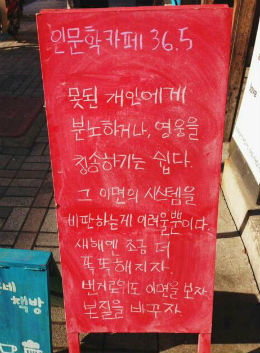 인문학카페 36.5
못된 개인에게
분노하거나, 영웅을
칭송하기는 쉽다.
그 이면의 시스템을
비판하는게 어려울뿐이다.
새해엔 조금 더
똑똑해지자.
번거로워도 이면을 보자.
본질을 바꾸자.
네
책방